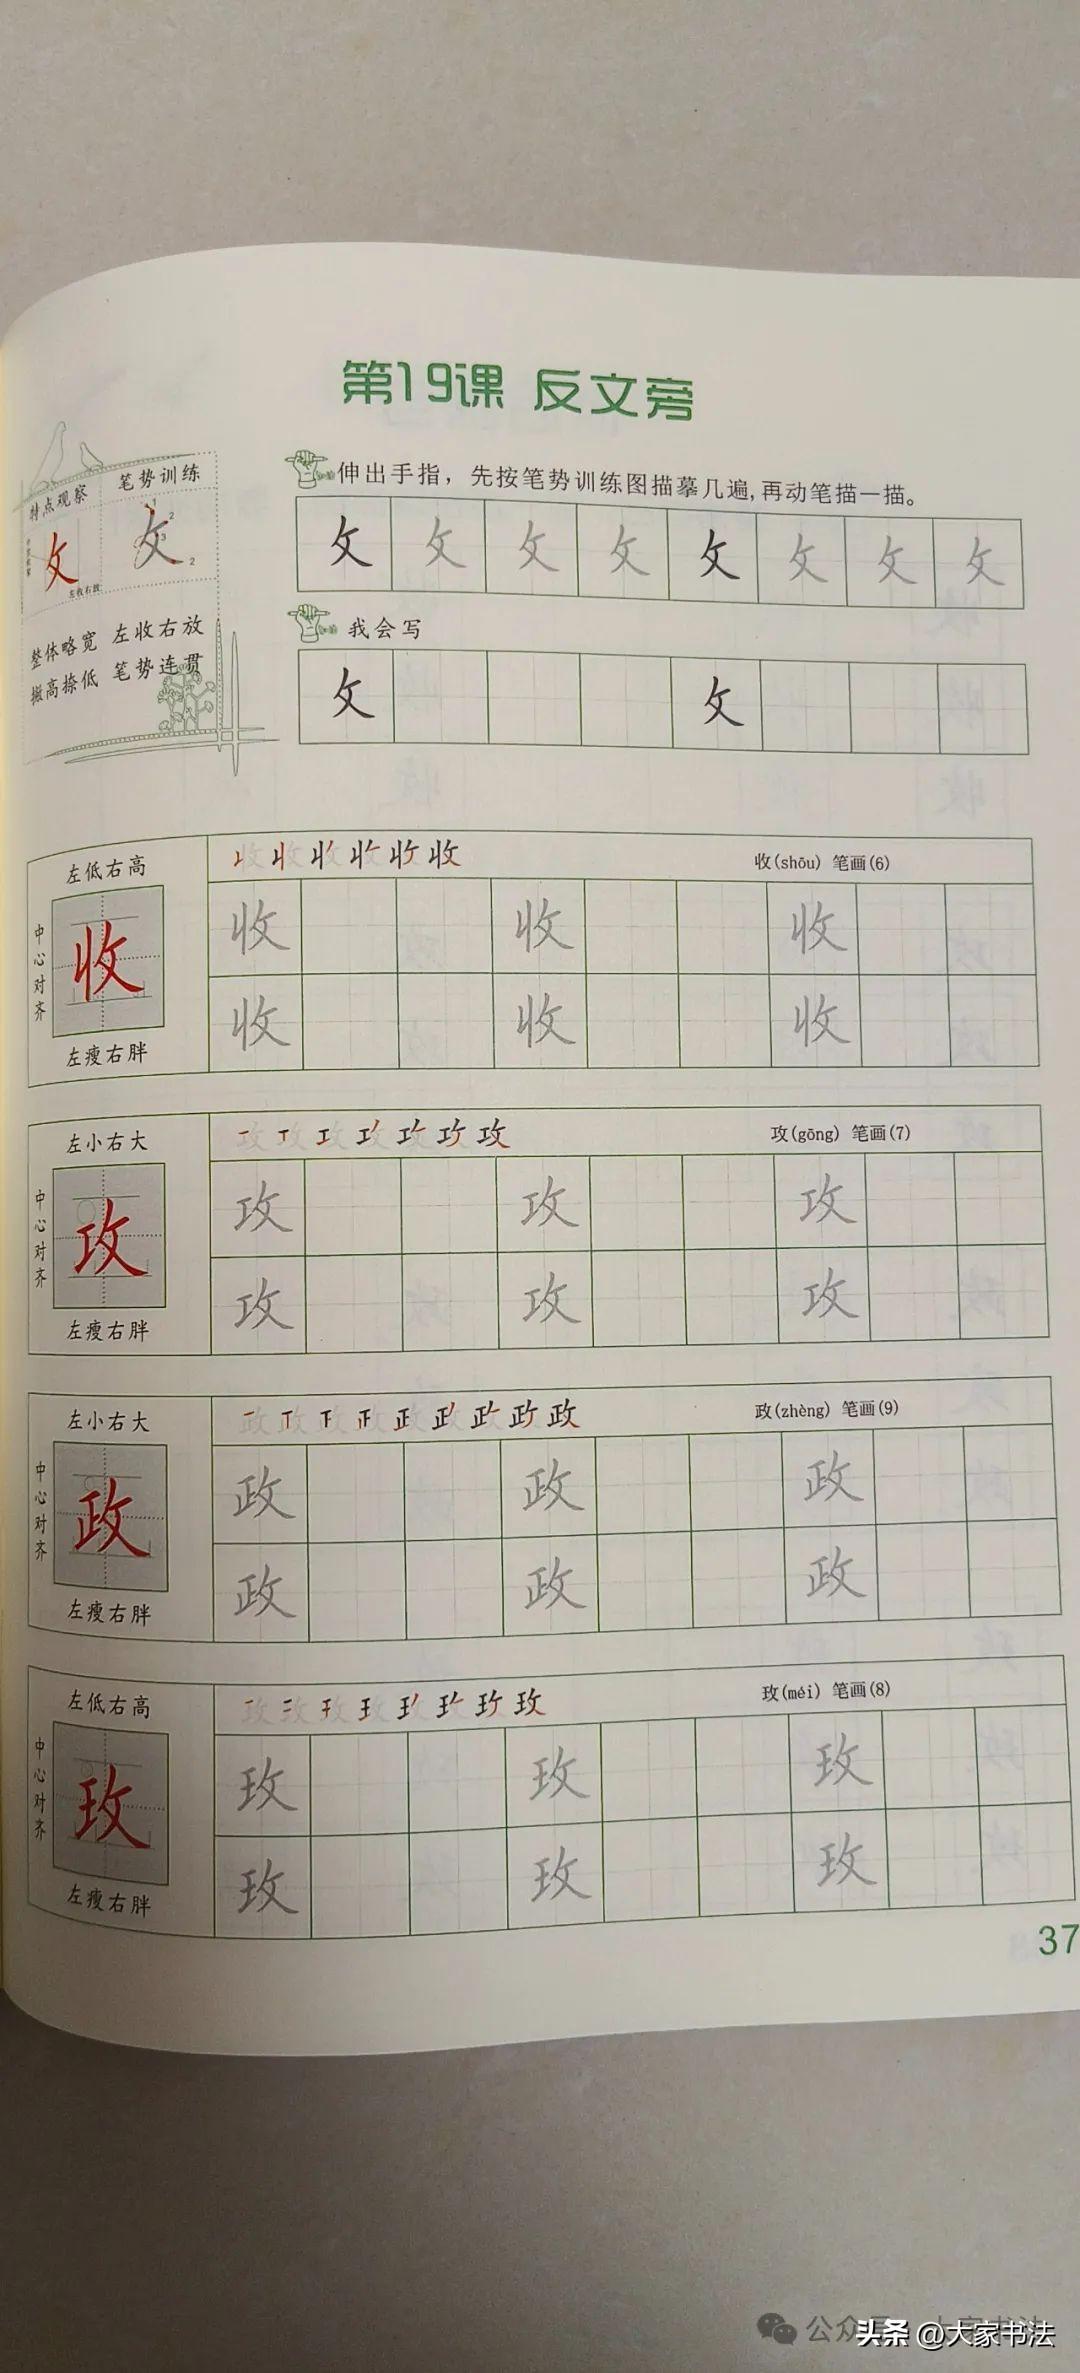 第19课 反文旁
特点观察 笔势训练
攵 攵
左收右放
整体略宽 左收右放
撇高捺低 笔势连贯
伸出手指，先按笔势训练图描摹几遍,再动笔描一描。
攵 攵 攵 攵 攵 攵 攵 攵
我会写
攵 攵
左低右高
中心对齐
收
左瘦右胖
收(shōu) 笔画(6)
收 收 收
收 收 收
左小右大
中心对齐
攻
左瘦右胖
攻(gōng) 笔画(7)
攻 攻 攻
攻 攻 攻
左小右大
中心对齐
政
左瘦右胖
政(zhèng) 笔画(9)
政 政 政
政 政 政
左低右高
中心对齐
玫
左瘦右胖
玫(méi) 笔画(8)
玫 玫 玫
玫 玫 玫
37
头条 @大家书法